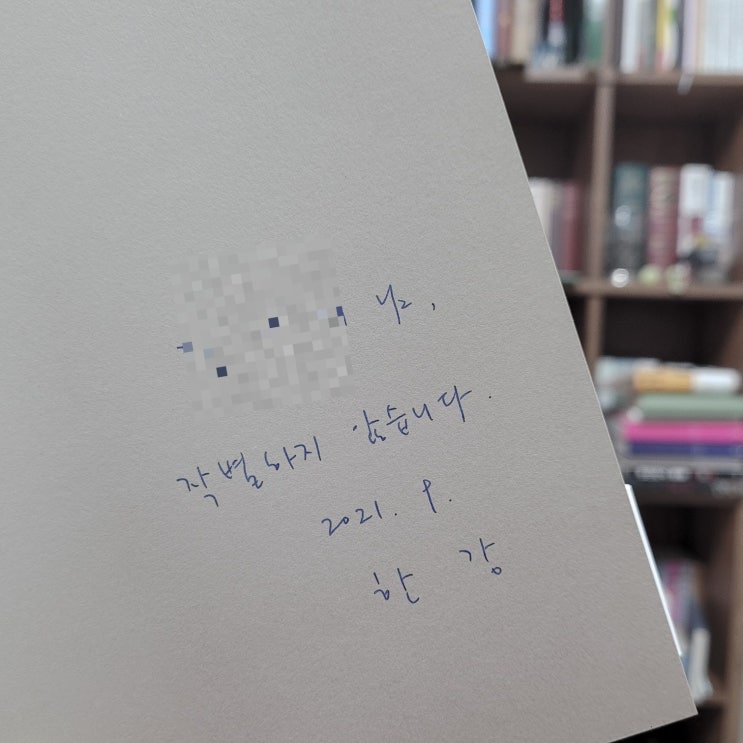 님,
작별하지 않습니다.
2021. 9.
한 강